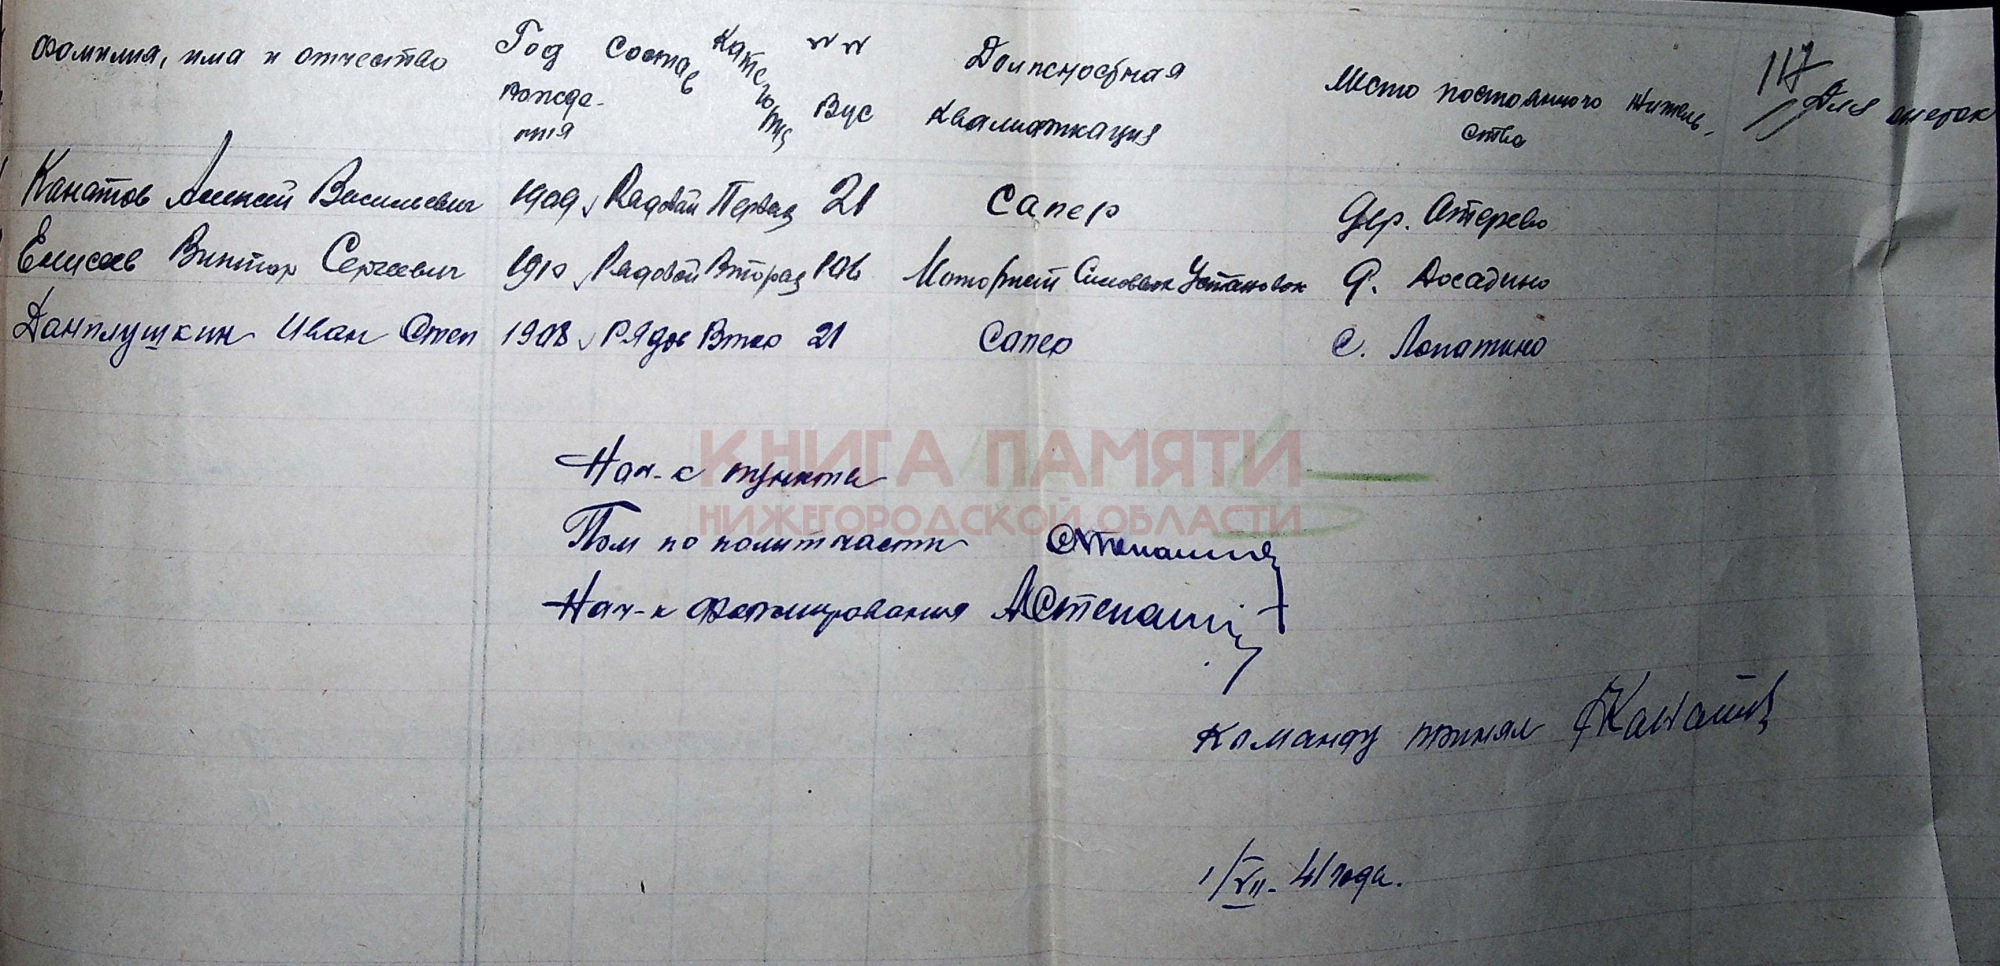 117
Фамилия, имя и отчество Год рождения Состав Категория №№ Вус Должностная квалификация Место постоянного житель-ства Для отметок
Канатов Алексей Васильевич 1909 Рядовой Первая 21 Сапер Дер. Отерево
Елисеев Виктор Сергеевич 1910 Рядовой Вторая 106 Моторист Силовых Установок Д. Досадино
Данилушкин Иван Степ 1908 Рядов Втор 21 Сапер С. Лопатино
КНИГА ПАМЯТИ
НИЖЕГОРОДСКОЙ ОБЛАСТИ
Нач-к пункта
Пом по политчасти Степанин
Нач-к формирования АСтепанин
Команду принял Канатов
1/VII-41 года.